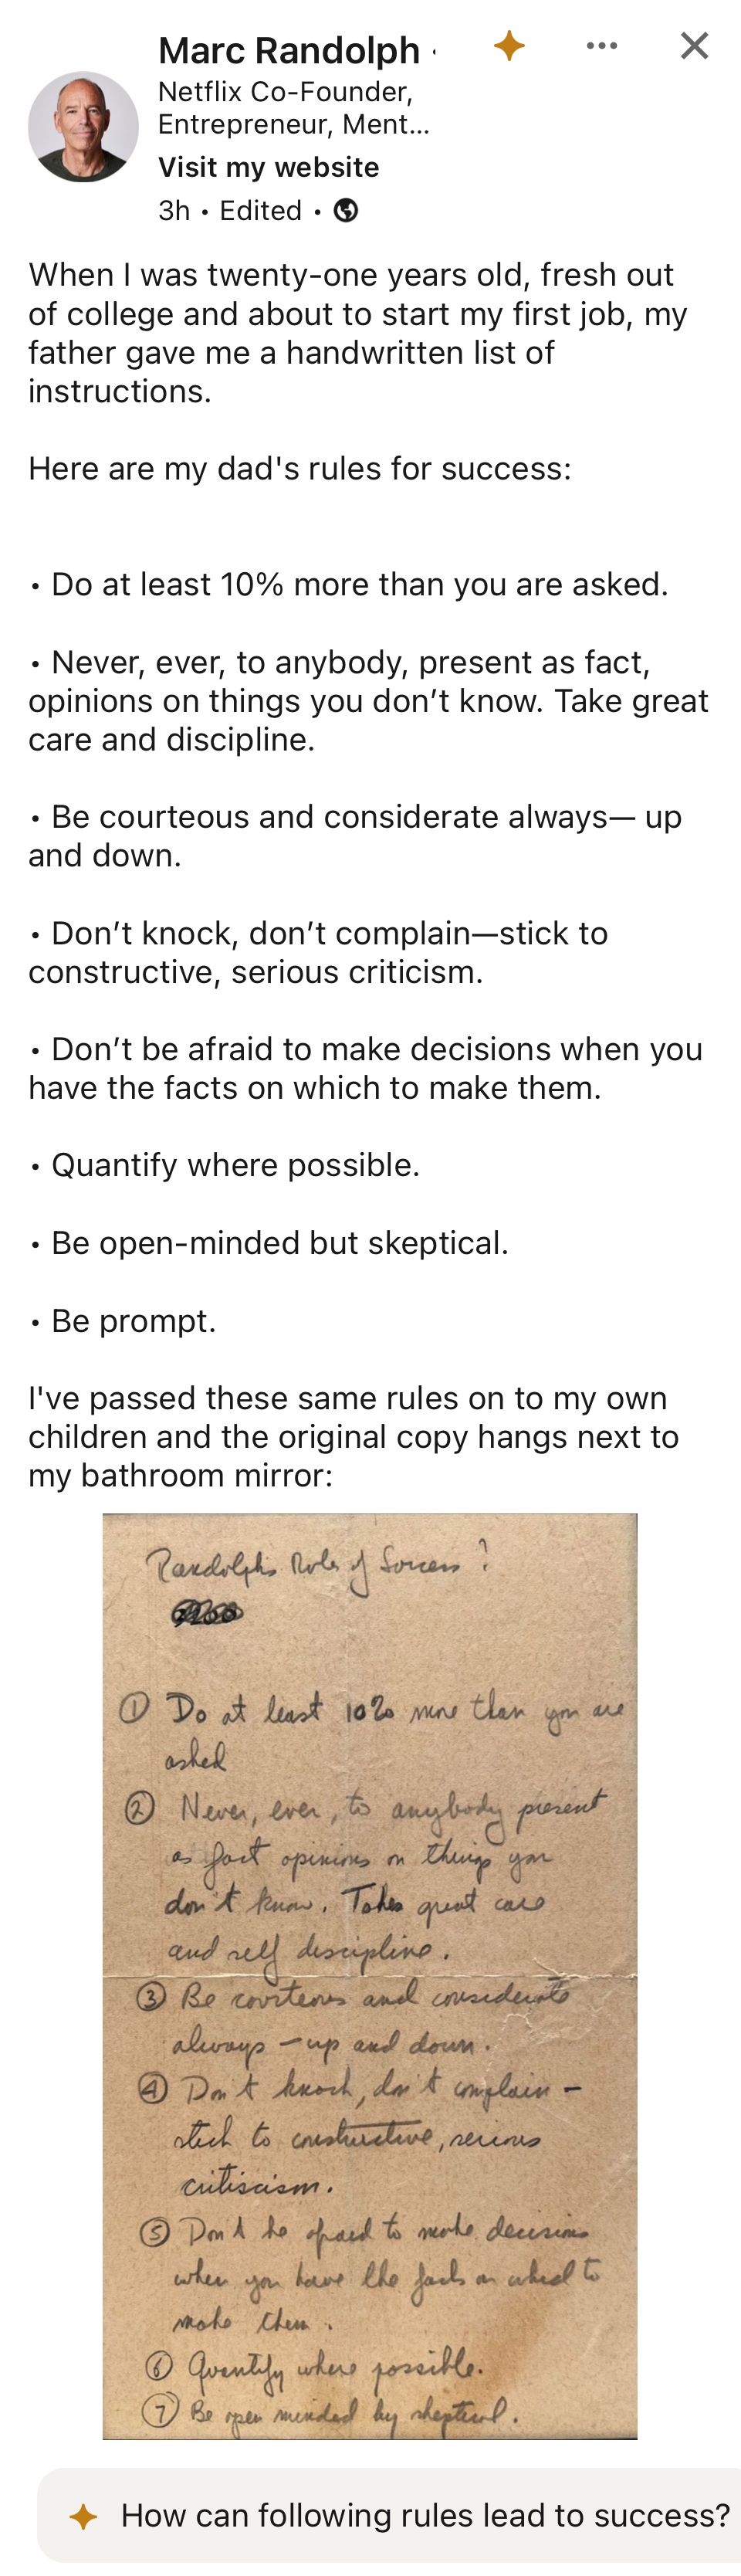 Marc Randolph ·
Netflix Co-Founder,
Entrepreneur, Ment...
Visit my website
3h • Edited •
When I was twenty-one years old, fresh out
of college and about to start my first job, my
father gave me a handwritten list of
instructions.
Here are my dad's rules for success:
• Do at least 10% more than you are asked.
• Never, ever, to anybody, present as fact,
opinions on things you don’t know. Take great
care and discipline.
• Be courteous and considerate always— up
and down.
• Don’t knock, don’t complain—stick to
constructive, serious criticism.
• Don’t be afraid to make decisions when you
have the facts on which to make them.
• Quantify where possible.
• Be open-minded but skeptical.
• Be prompt.
I've passed these same rules on to my own
children and the original copy hangs next to
my bathroom mirror:
Randolph's Rules of Success?
① Do at least 10% more than you are
asked
② Never, ever, to anybody present
as fact opinions on things you
don't know. Takes great care
and self discipline.
③ Be courteous and considerate
always – up and down.
④ Don't knock, don't complain –
stick to constructive, serious
critiscism.
⑤ Don't be afraid to make decisions
when you have the facts on which to
make them.
⑥ Quantify where possible.
⑦ Be open minded by skeptical.
How can following rules lead to success?